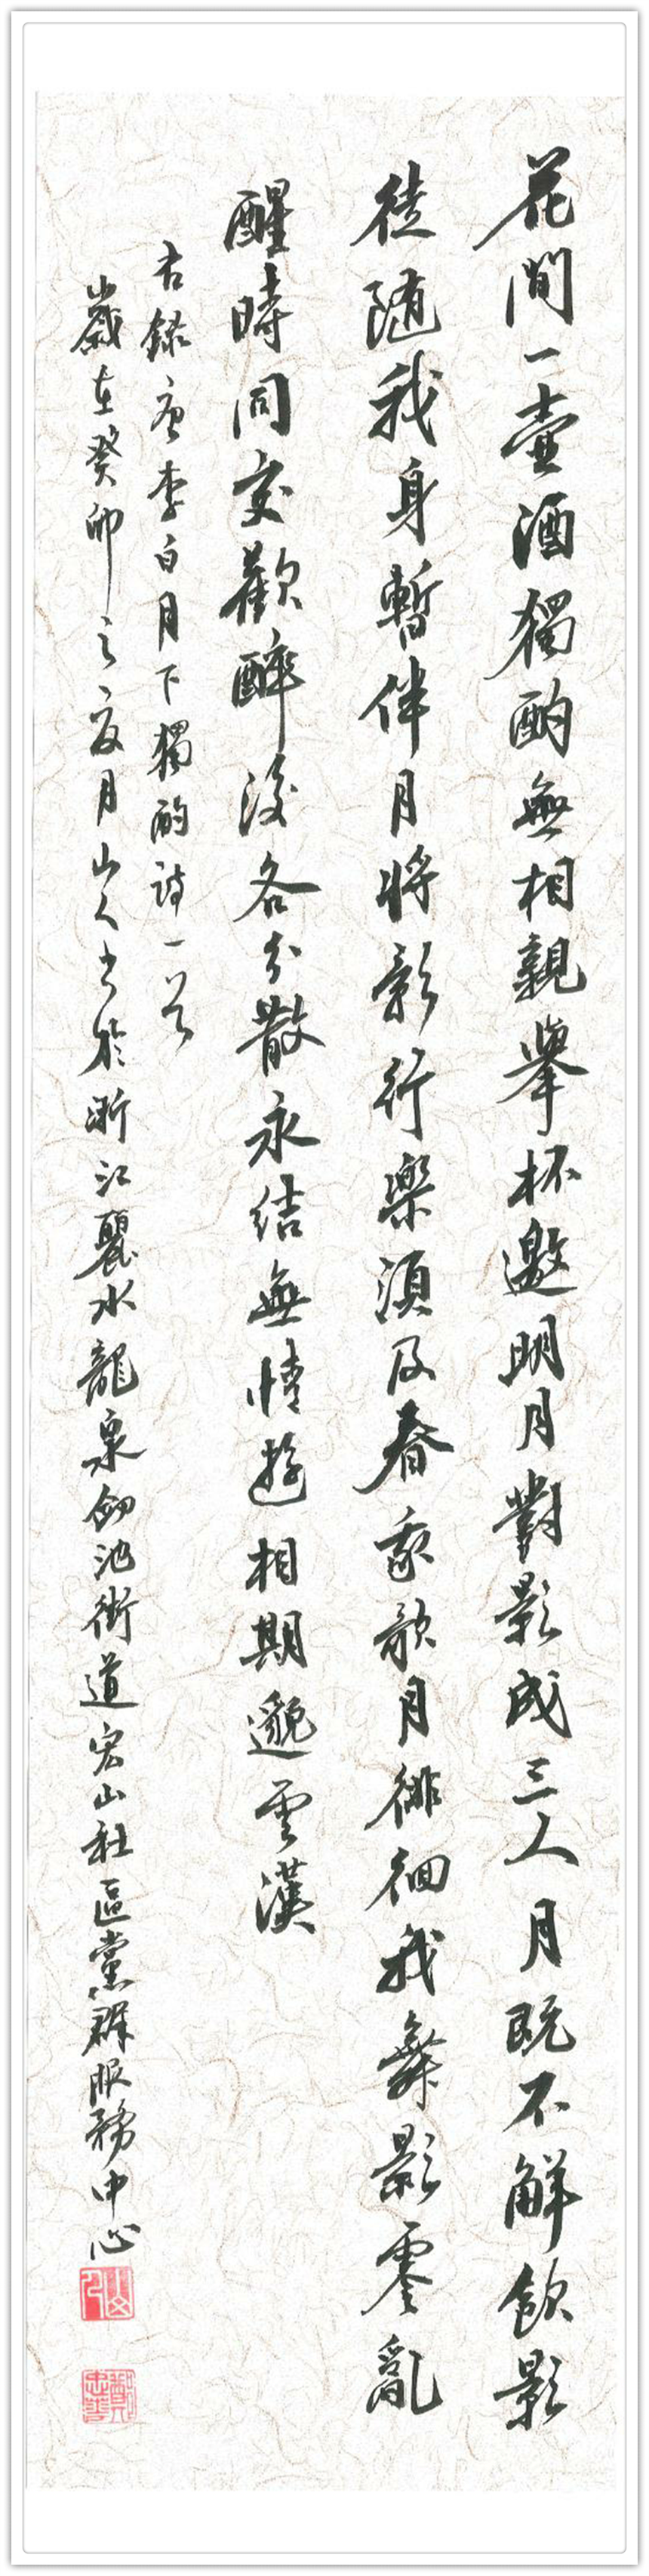 花間一壺酒獨酌無相親舉杯邀明月對影成三人月既不解飲影
徒隨我身暫伴月將影行樂須及春我歌月徘徊我舞影零亂
醒時同交歡醉後各分散永結無情遊相期邈雲漢
右錄唐李白月下獨酌詩一首
歲在癸卯之夏月山人書於浙江麗水龍泉劍池街道宏山社區黨群服務中心
山人